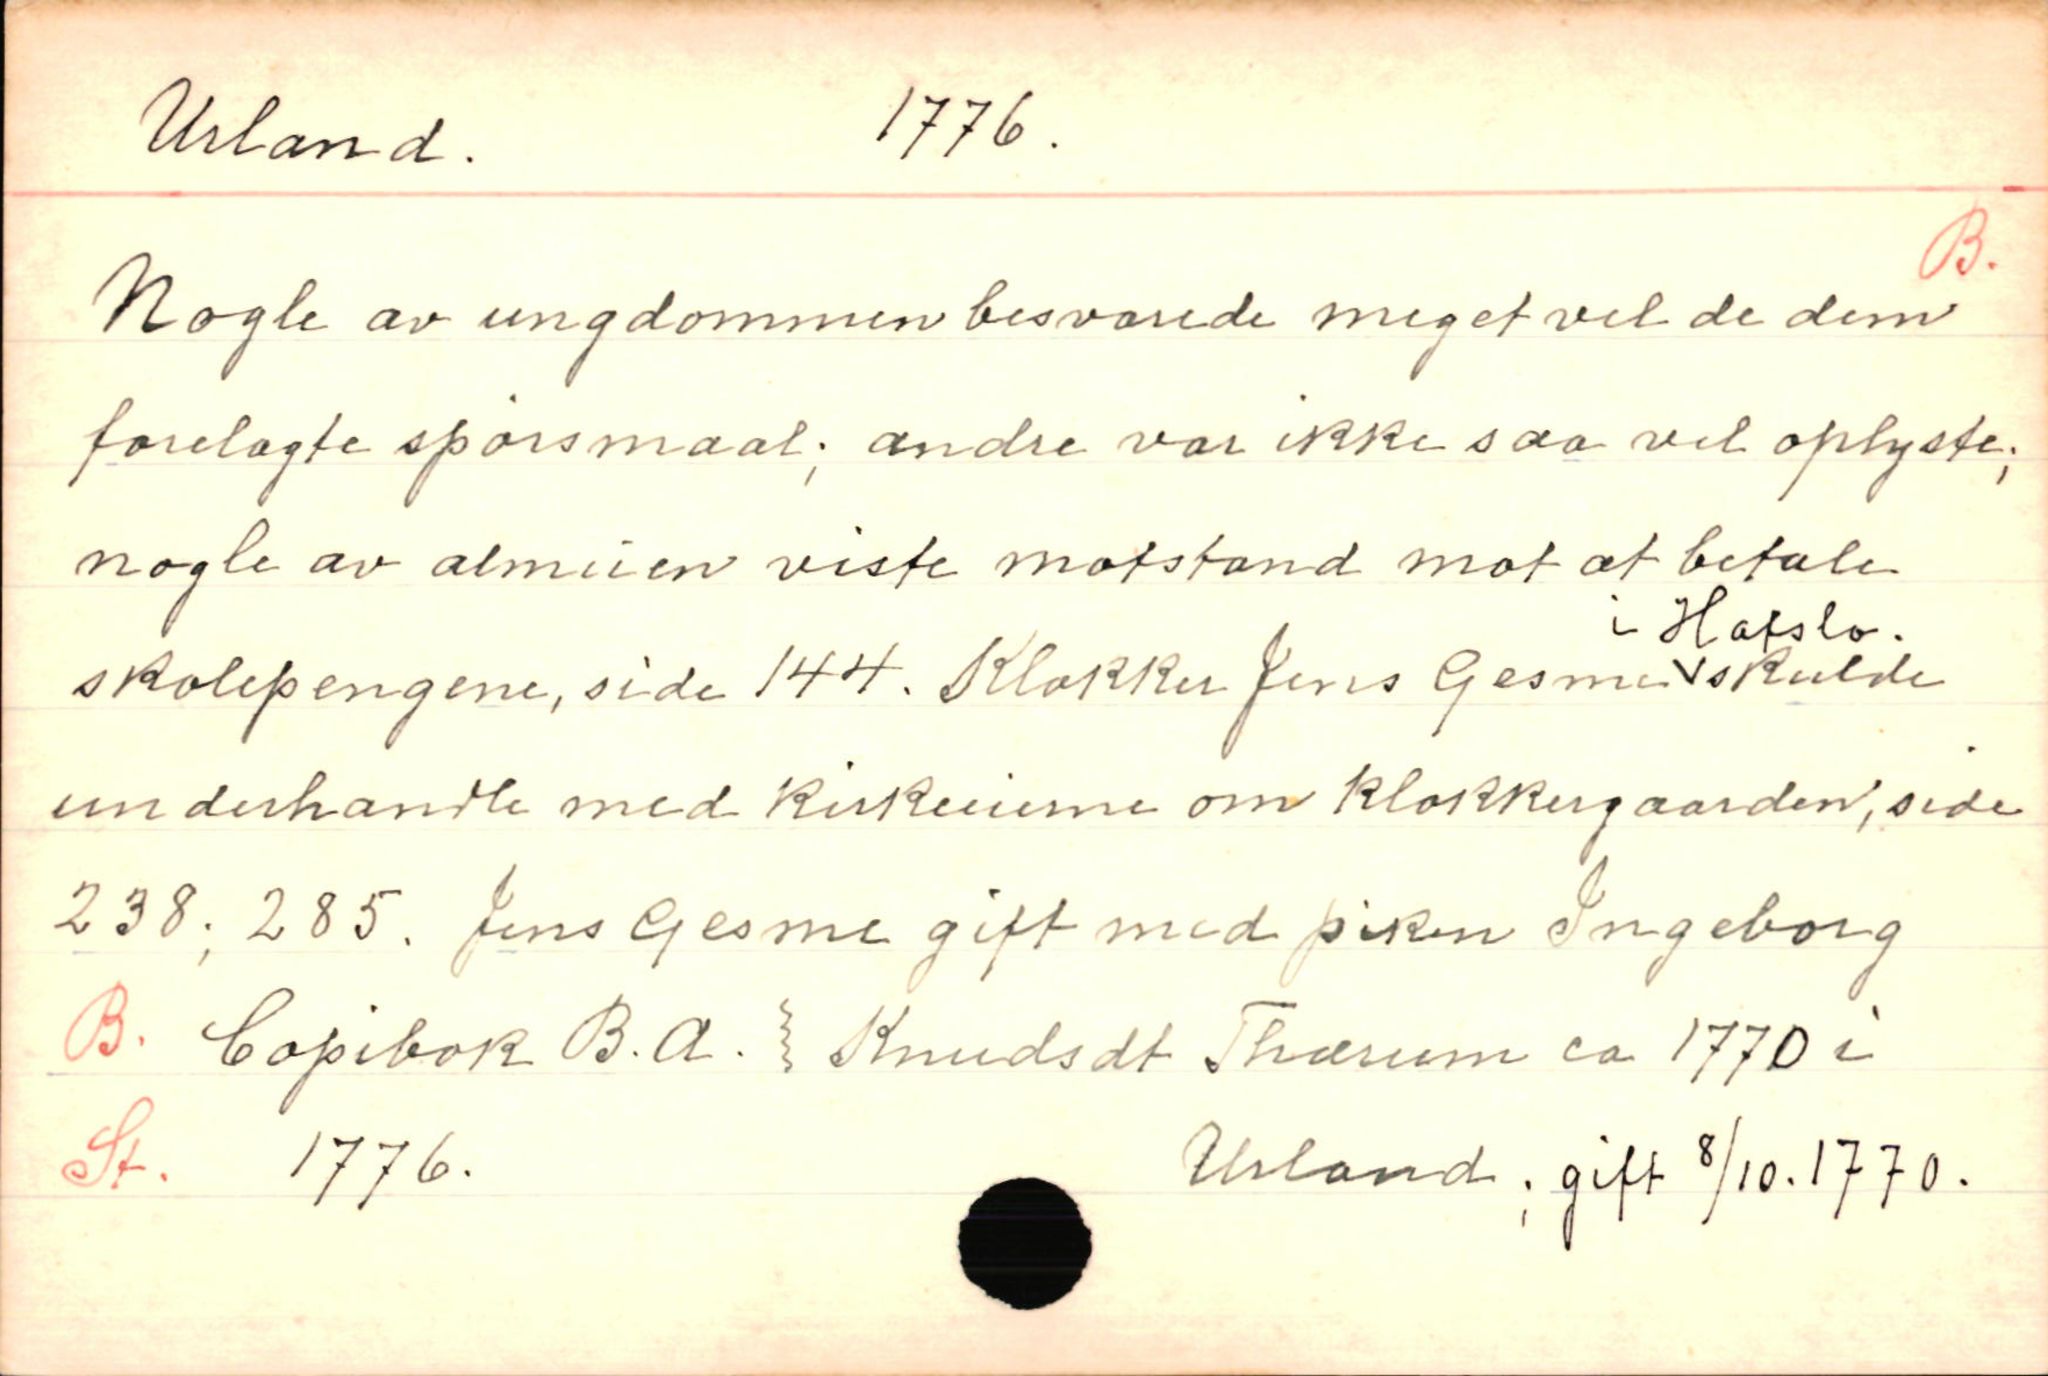 Urland. 1776.
B.
Nogle av ungdommen besvarede meget vel de dem
forelagte spörsmaal; andre var ikke saa vel oplyste;
nogle av almuen viste motstand mot at betale
i Hafslo.
skolepengene, side 144. Klokker Jens Gesme skulde
underhandle med kirkeierne om klokkergaarden, side
238; 285. Jens Gesme gift med piken Ingeborg
B. Copibok B.A. Knudsdt Thærum ca 1770 i
St. 1776. Urland; gift 8/10.1770.